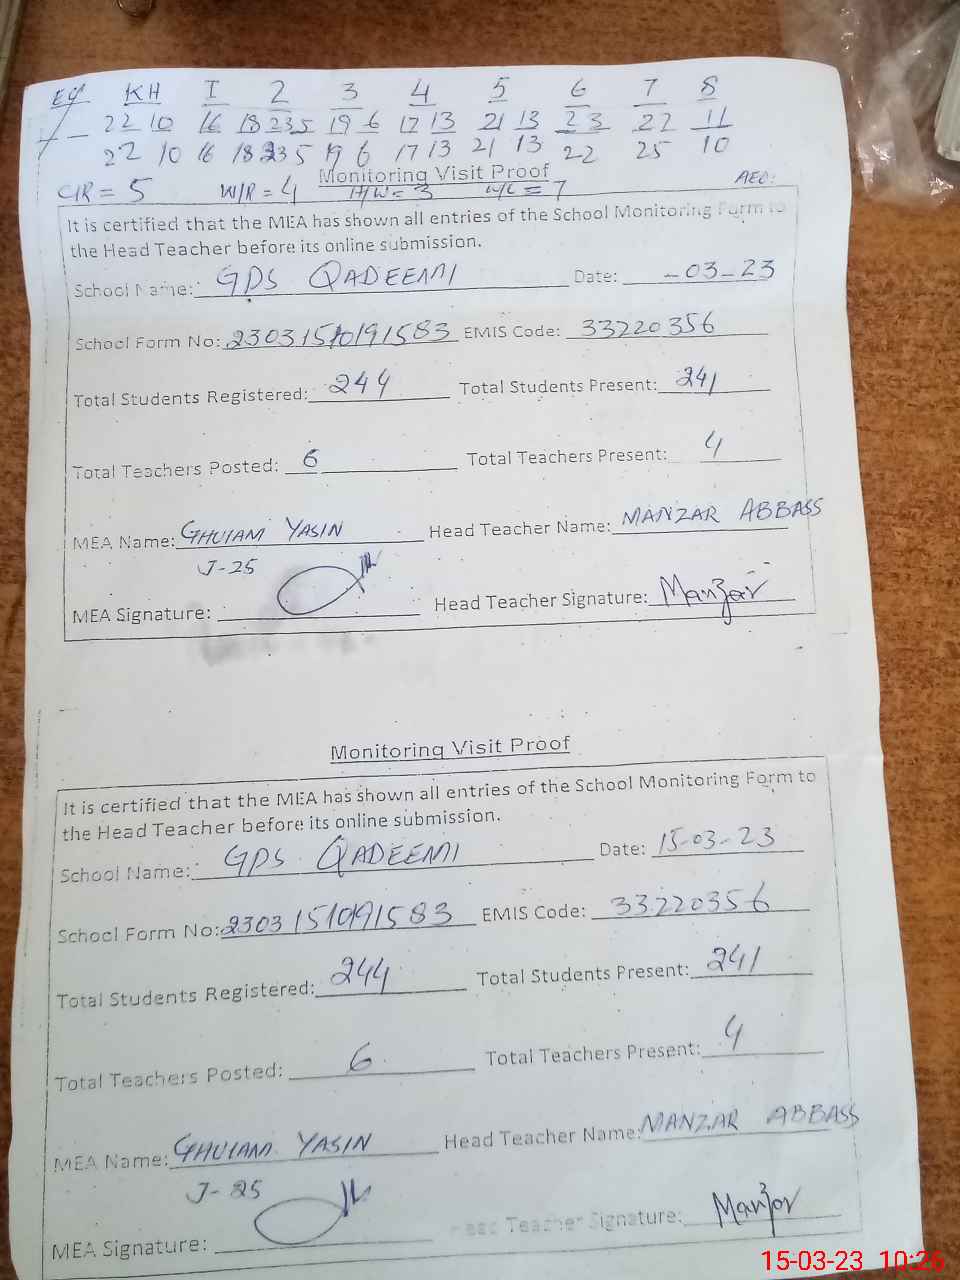 KH I 2 3 4 5 6 7 8
22 10 16 18 235 19 6 17 13 21 13 23 22 11
22 10 16 18 235 19 6 17 13 21 13 22 25 10
Monitoring Visit Proof AEO:
CIR = 5 W/R = 4 H/W = 3 = 7
It is certified that the MEA has shown all entries of the School Monitoring Form to
the Head Teacher before its online submission.
School Name: GPS QADEEMI Date: -03-23
School Form No: 23031510191583 EMIS Code: 33220356
Total Students Registered: 244 Total Students Present: 241
Total Teachers Posted: 6 Total Teachers Present: 4
MEA Name: GHULAM YASIN Head Teacher Name: MANZAR ABBASS
J-25
MEA Signature: Head Teacher Signature: Manzar
Monitoring Visit Proof
It is certified that the MEA has shown all entries of the School Monitoring Form to
the Head Teacher before its online submission.
School Name: GPS QADEEMI Date: 15-03-23
School Form No: 23031510191583 EMIS Code: 33220356
Total Students Registered: 244 Total Students Present: 241
Total Teachers Posted: 6 Total Teachers Present: 4
MEA Name: GHULAM YASIN Head Teacher Name: MANZAR ABBASS
J-25
MEA Signature: Head Teacher Signature: Manzar
15-03-23 10:26